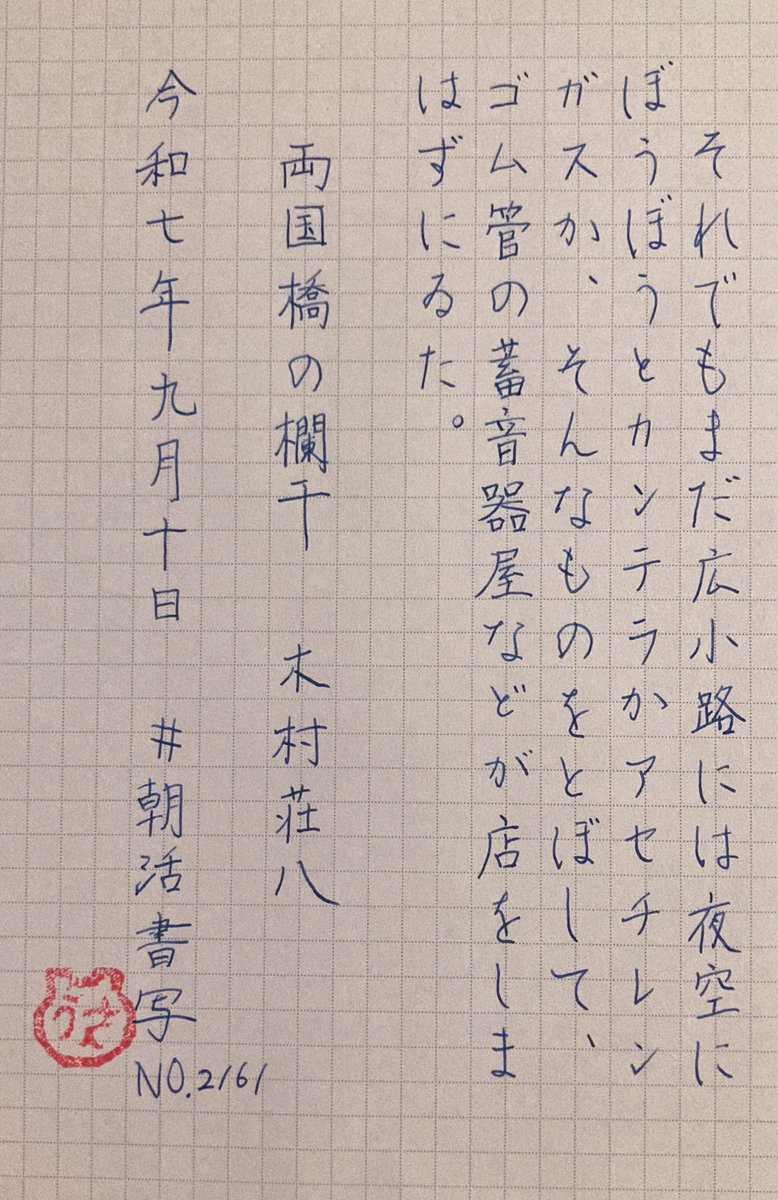 それでもまだ広小路には夜空に
ぼうぼうとカンテラかアセチレン
ガスか、そんなものをとぼして、
ゴム管の蓄音器屋などが店をしま
はずにゐた。
両国橋の欄干　木村荘八
令和七年九月十日　#朝活書写
NO.2161
うさ